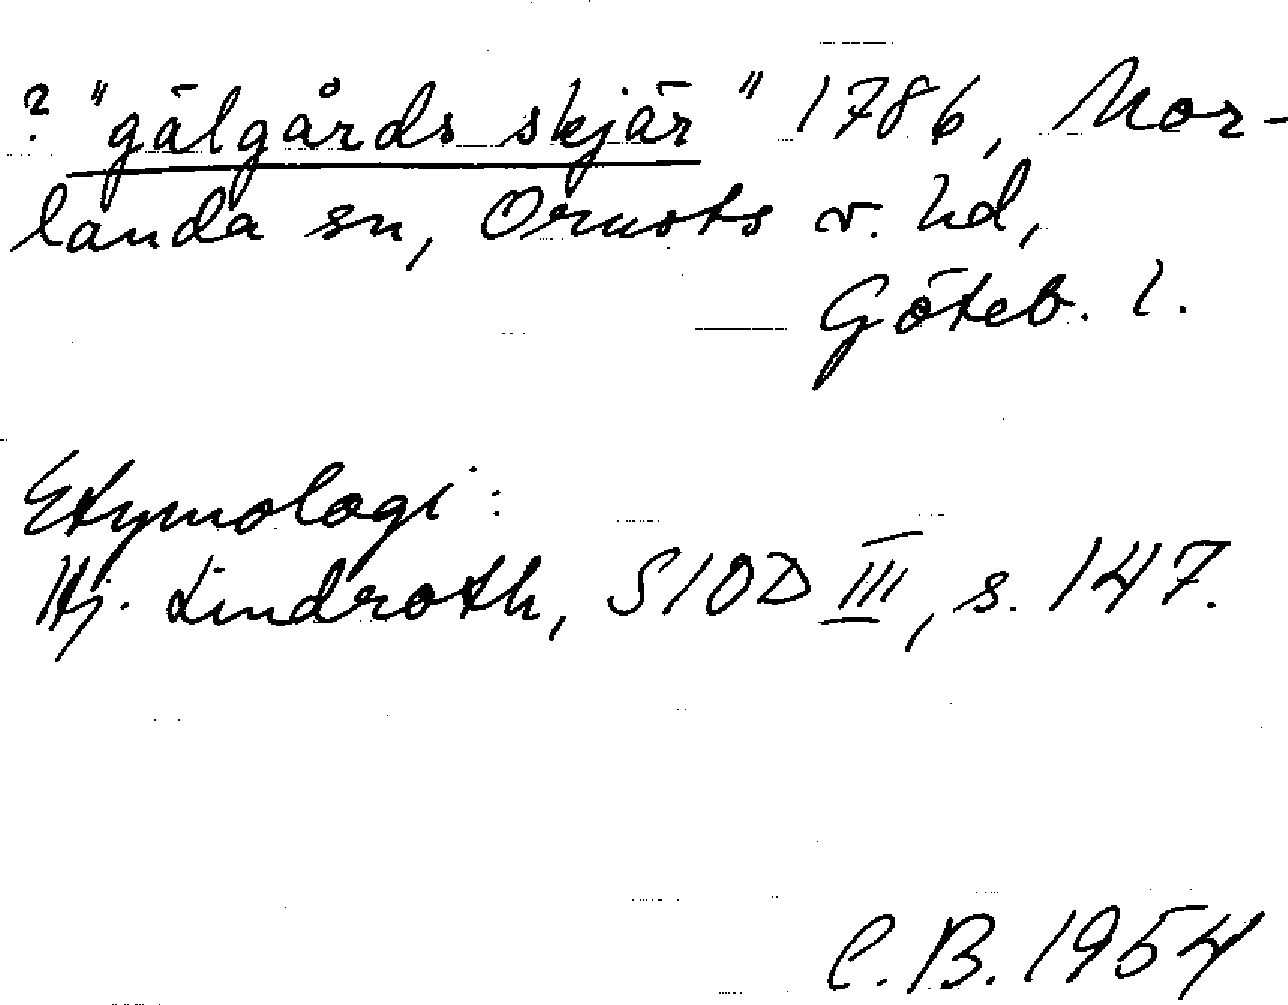 ? "gälgårds skjär" 1786, Mor-
landa sn, Orusts v. hd,
Göteb. l.
Etymologi:
Hj. Lindroth, SIOD III, s. 147.
C.B. 1954